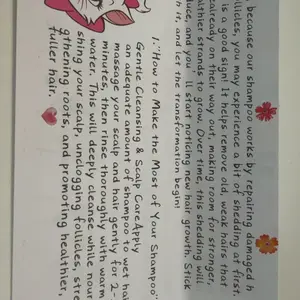 , because our shampoo works by repairing damaged h
licles, you may experience a bit of shedding at first
is a good sign! it helps remove old, weak hair that
already on their way out, making room for stronger
althier strands to grow. Over time, this shedding will
duce, and you'll start noticing new hair growth. Stick
h it, and let the transformation begin!
1."How to Make the Most of Your Shampoo"
Gentle Cleansing & Scalp CareApply
an adequate amount of shampoo to wet hair
massage your scalp and hair gently for 2-
minutes, then rinse thoroughly with warm
water. This will deeply cleanse while nour
shing your scalp, unclogging follicles, stre
gthening roots, and promoting healthier,
fuller hair.